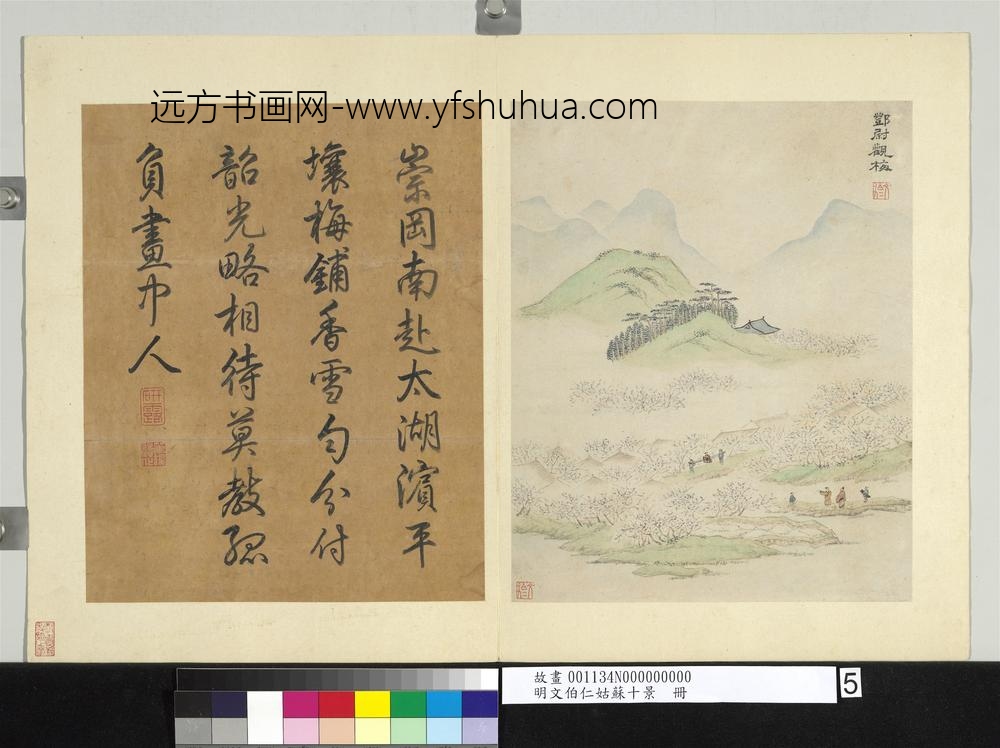 远方书画网-www.yfshuhua.com
崇岡南赴太湖濱平
壤梅鋪香雪勻分付
韶光略相待莫教孤
負畫中人
鄧尉觀梅
故畫 001134N000000000
明文伯仁姑蘇十景 冊
5